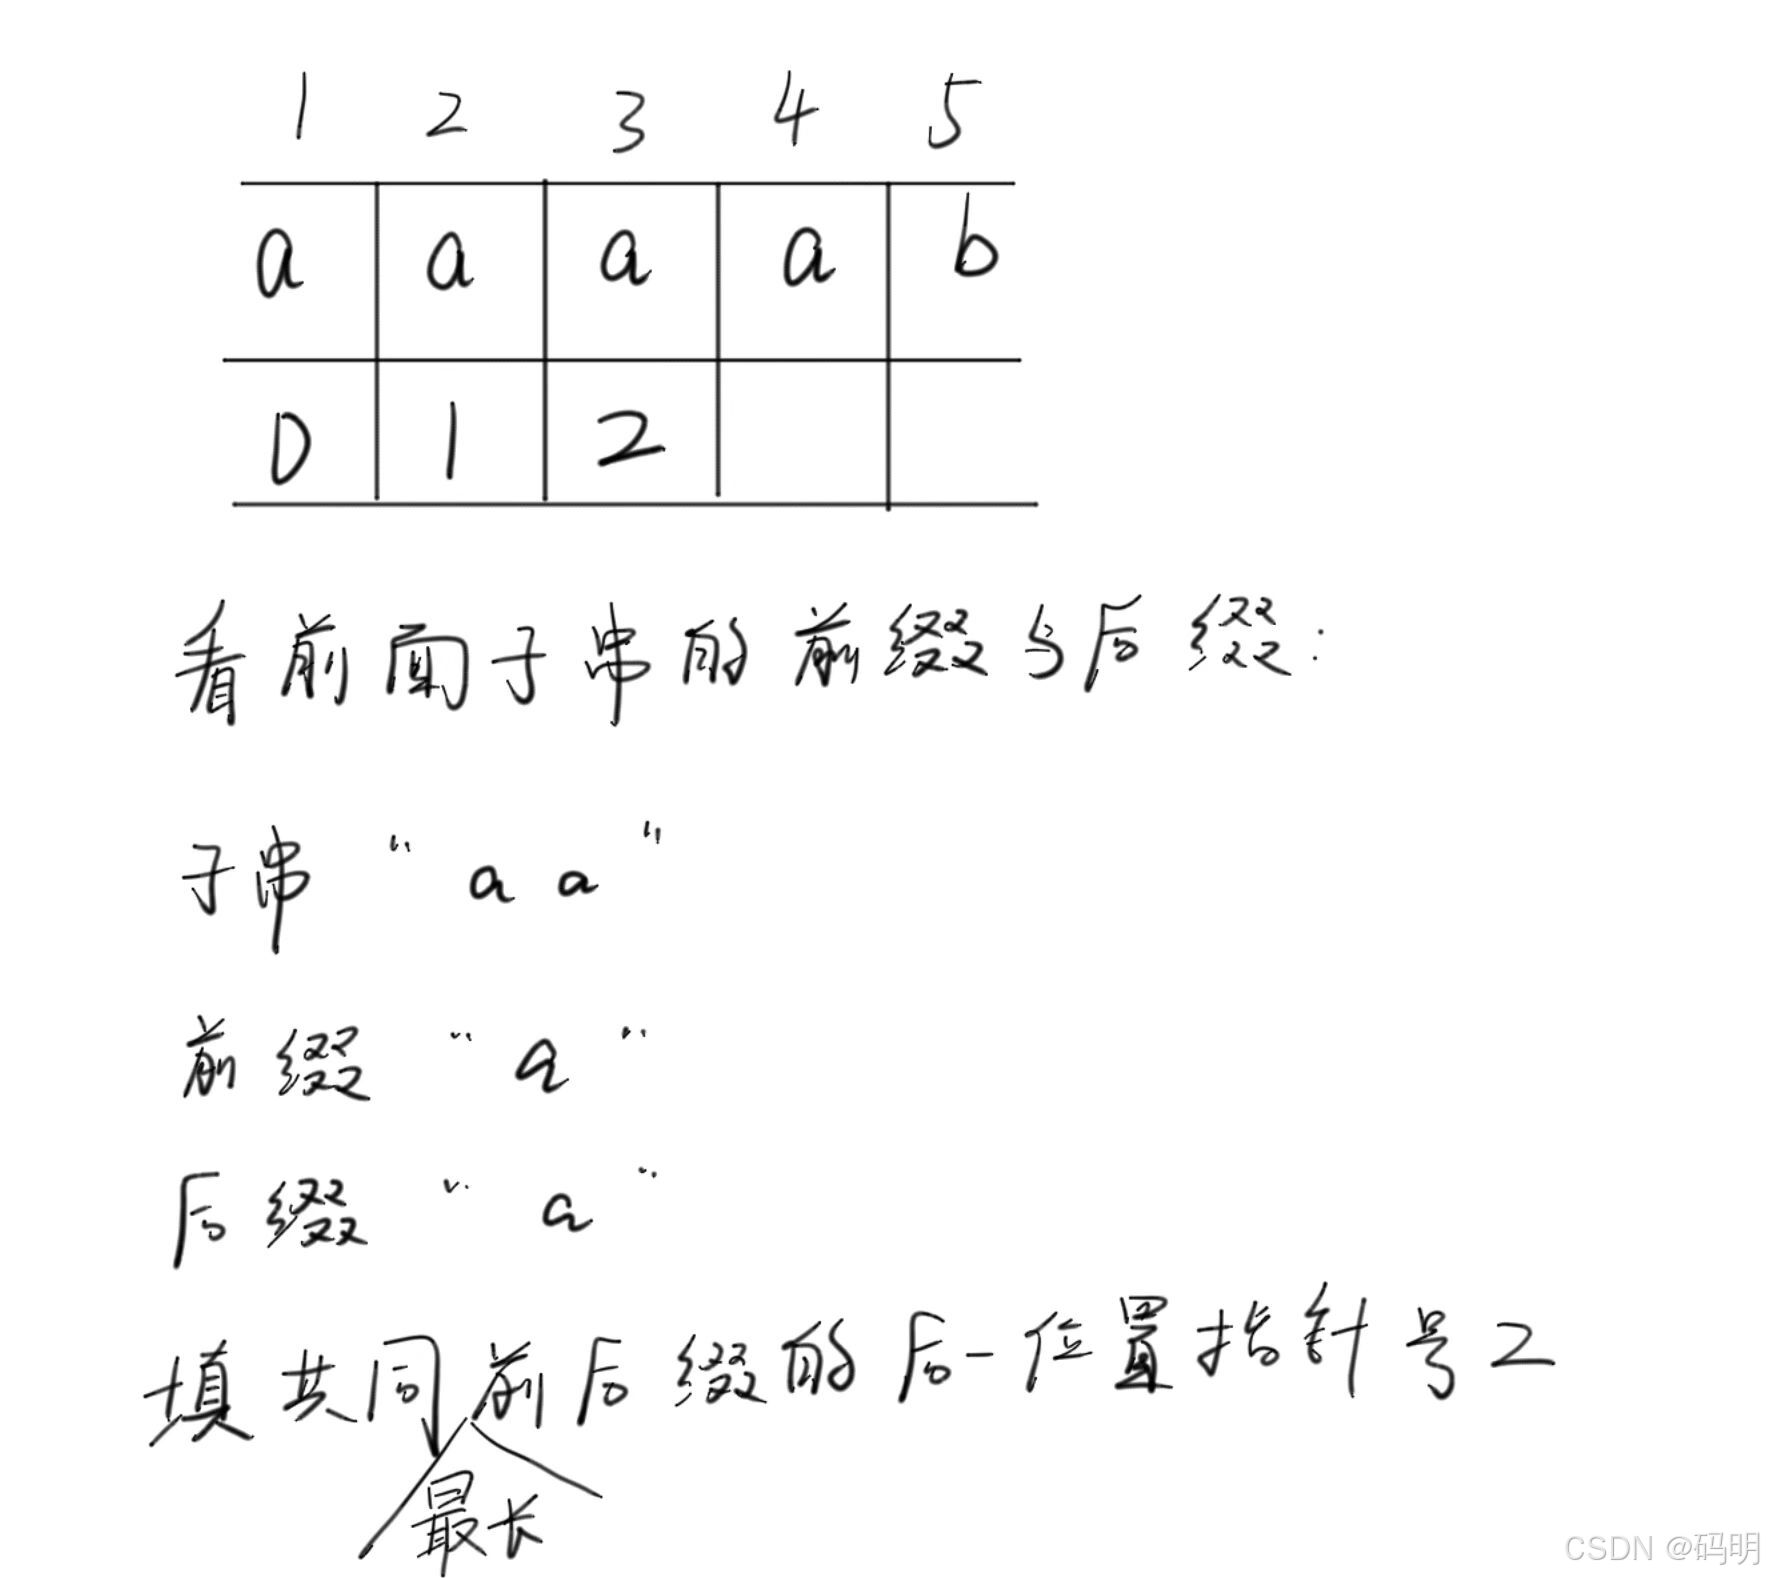 1 2 3 4 5
a a a a b
0 1 2
看前面子串的前缀与后缀:
子串 "aa"
前缀 "a"
后缀 "a"
填共同前后缀的后一位置指针号2
最长
CSDN @码明